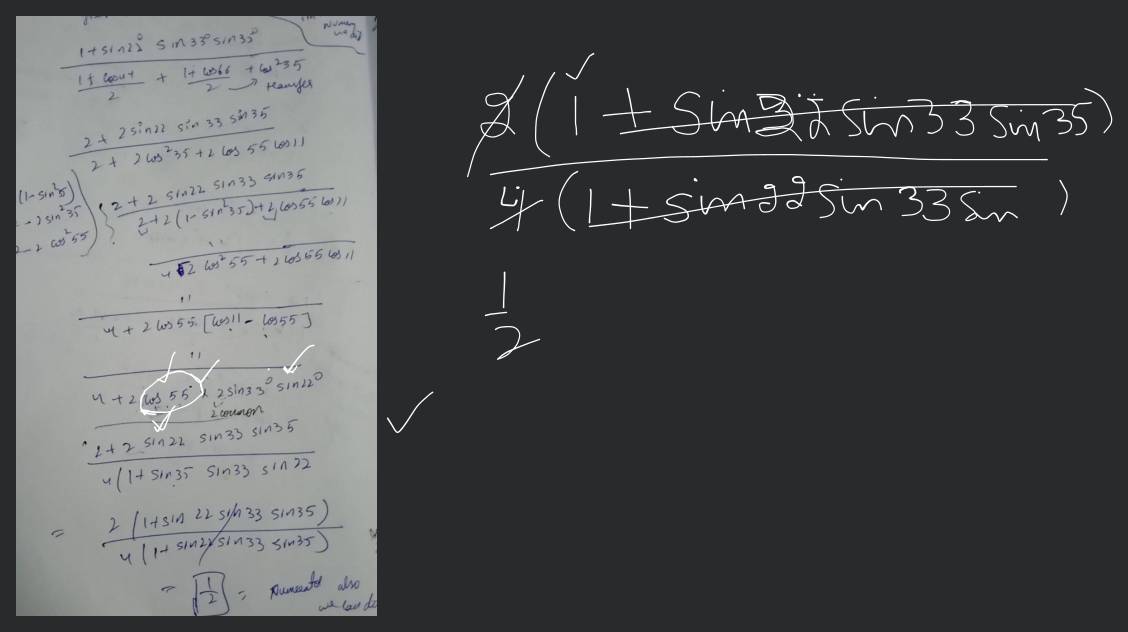 1 + sin22° sin33° sin35°
1 + cos44/2 + 1 + cos66/2 + cos²35
transfer
2 + 2 sin22 sin33 sin35
2 + 2 cos²35 + 2 cos55 cos11
2 + 2 sin22 sin33 sin35
2 + 2(1 - sin²35) + 2 cos55 cos11
(1 - sin²35)
- 2 sin²35
- 2 cos²55
"
4 - 2 cos²55 + 2 cos55 cos11
"
4 + 2 cos55 [cos11 - cos55]
"
4 + 2 cos55° × 2 sin33° sin22°
2 common
2 + 2 sin22 sin33 sin35
4(1 + sin35 sin33 sin22
= 2(1 + sin22 sin33 sin35)
4(1 + sin22 sin33 sin35)
= 1/2 = Numerator also
we can do
2(1 + sin 22 sin33 sin35)
4(1 + sin22 sin33 sin )
1
2